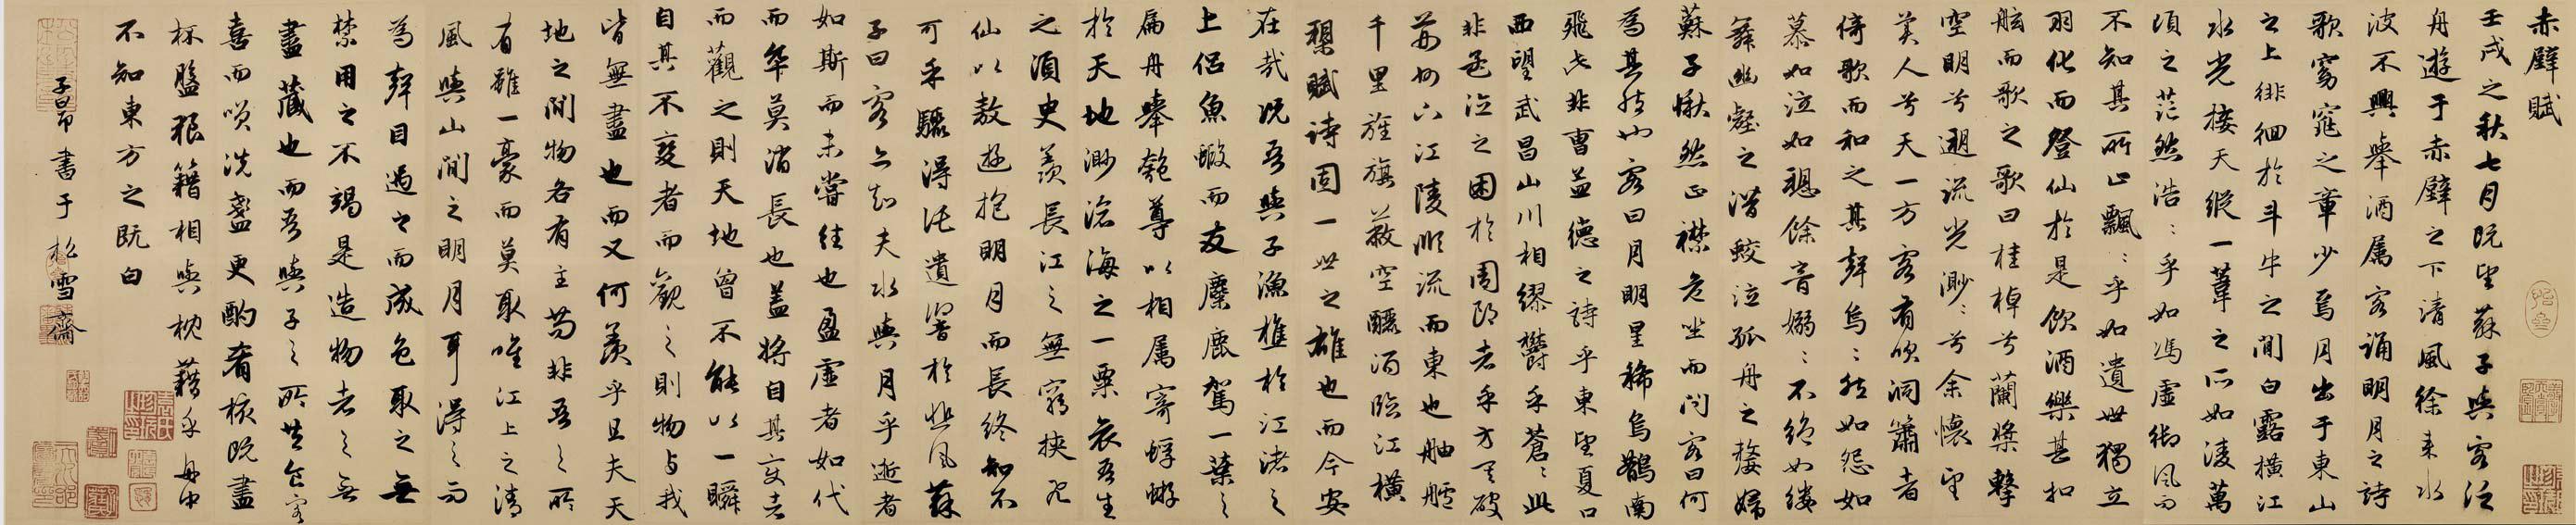 赤壁賦
壬戌之秋七月既望蘇子與客泛
舟遊于赤壁之下清風徐来水
波不興舉酒属客誦明月之詩
歌窈窕之章少焉月出于東山
之上徘徊於斗牛之間白露橫江
水光接天縱一葦之所如凌萬
頃之茫然浩〻乎如馮虛御風而
不知其所止飄〻乎如遺世獨立
羽化而登仙於是飲酒樂甚扣
舷而歌之歌曰桂棹兮蘭槳擊
空明兮遡流光渺〻兮余懷望
美人兮天一方客有吹洞簫者
倚歌而和之其聲烏〻然如怨如
慕如泣如聴餘音嫋〻不絶如縷
舞幽壑之潛蛟泣孤舟之嫠婦
蘇子愀然正襟危坐而問客曰何
為其然也客曰月明星稀烏鵲南
飛此非曹孟德之詩乎東望夏口
西望武昌山川相繆鬱乎蒼〻此
非孟德之困於周郎者乎方其破
荊州下江陵順流而東也舳艫
千里旌旗蔽空釃酒臨江橫
槊賦詩固一世之雄也而今安
在哉況吾與子漁樵於江渚之
上侶魚蝦而友麋鹿駕一葉之
扁舟舉匏尊以相属寄蜉蝣
於天地渺滄海之一粟哀吾生
之須臾羨長江之無窮挾飛
仙以敖遊抱明月而長終知不
可乎驟得託遺響於悲風蘇
子曰客亦知夫水與月乎逝者
如斯而未嘗往也盈虛者如代
而卒莫消長也蓋將自其変者
而觀之則天地曾不能以一瞬
自其不変者而觀之則物与我
皆無盡也而又何羨乎且夫天
地之間物各有主苟非吾之所
有雖一豪而莫取唯江上之清
風與山間之明月耳得之而
為聲目遇之而成色取之無
禁用之不竭是造物者之無
盡藏也而吾與子之所共食客
喜而笑洗盞更酌肴核既盡
杯盤狼籍相與枕藉乎舟中
不知東方之既白
子昂書于松雪齋